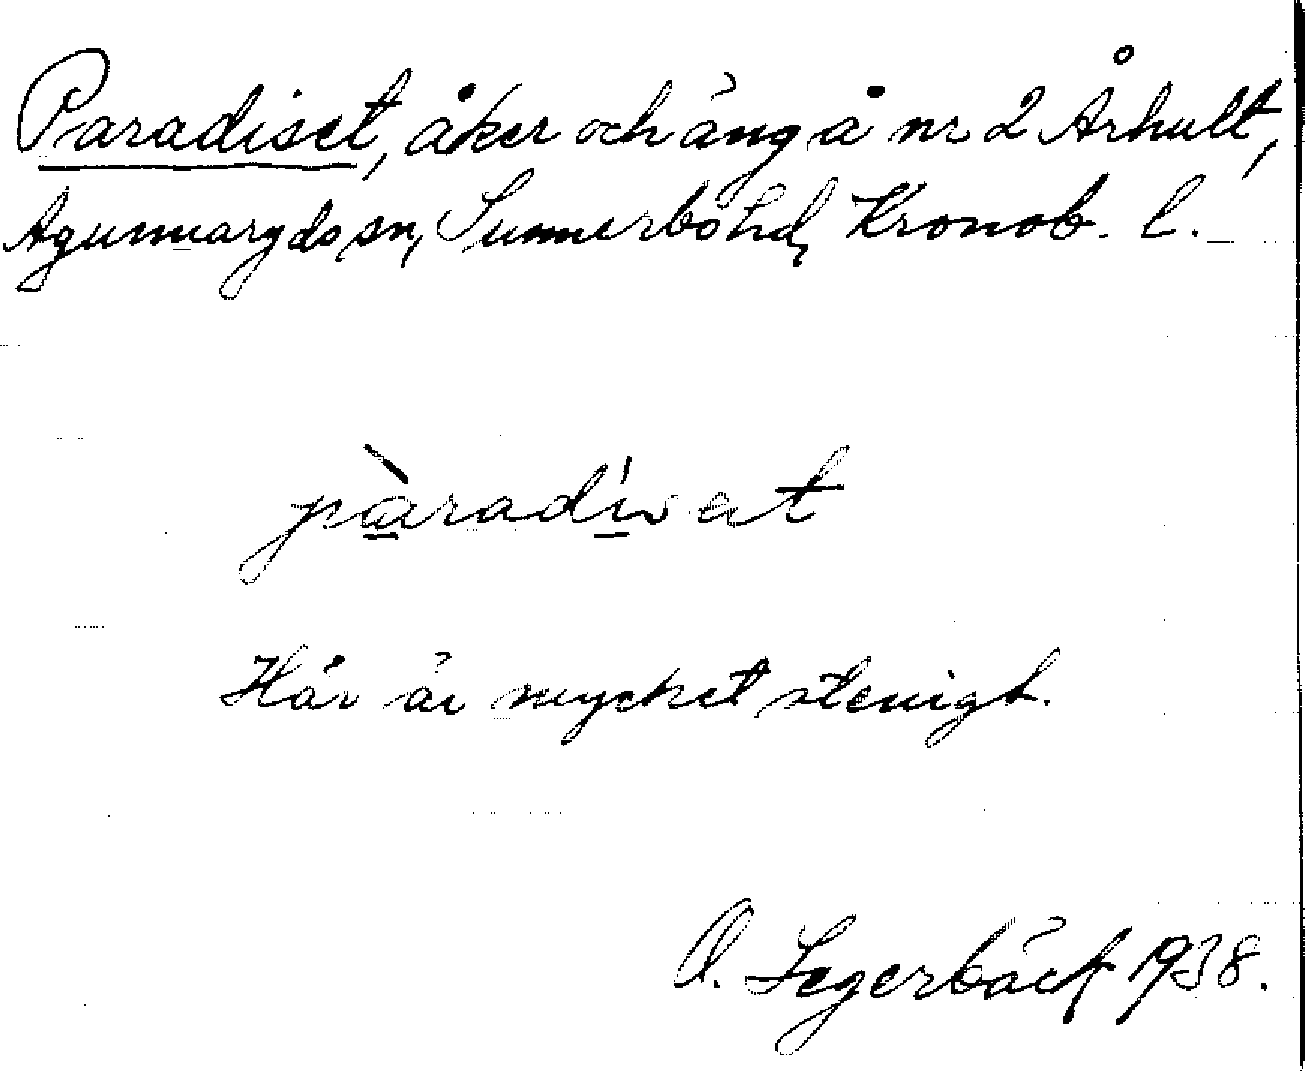 Paradiset, åker och äng å nr 2 Århult,
Agunnaryds sn, Sunnerbo hd, Kronob. l.
pàradíset
Här är mycket stenigt.
O. Segerbäck 1938.